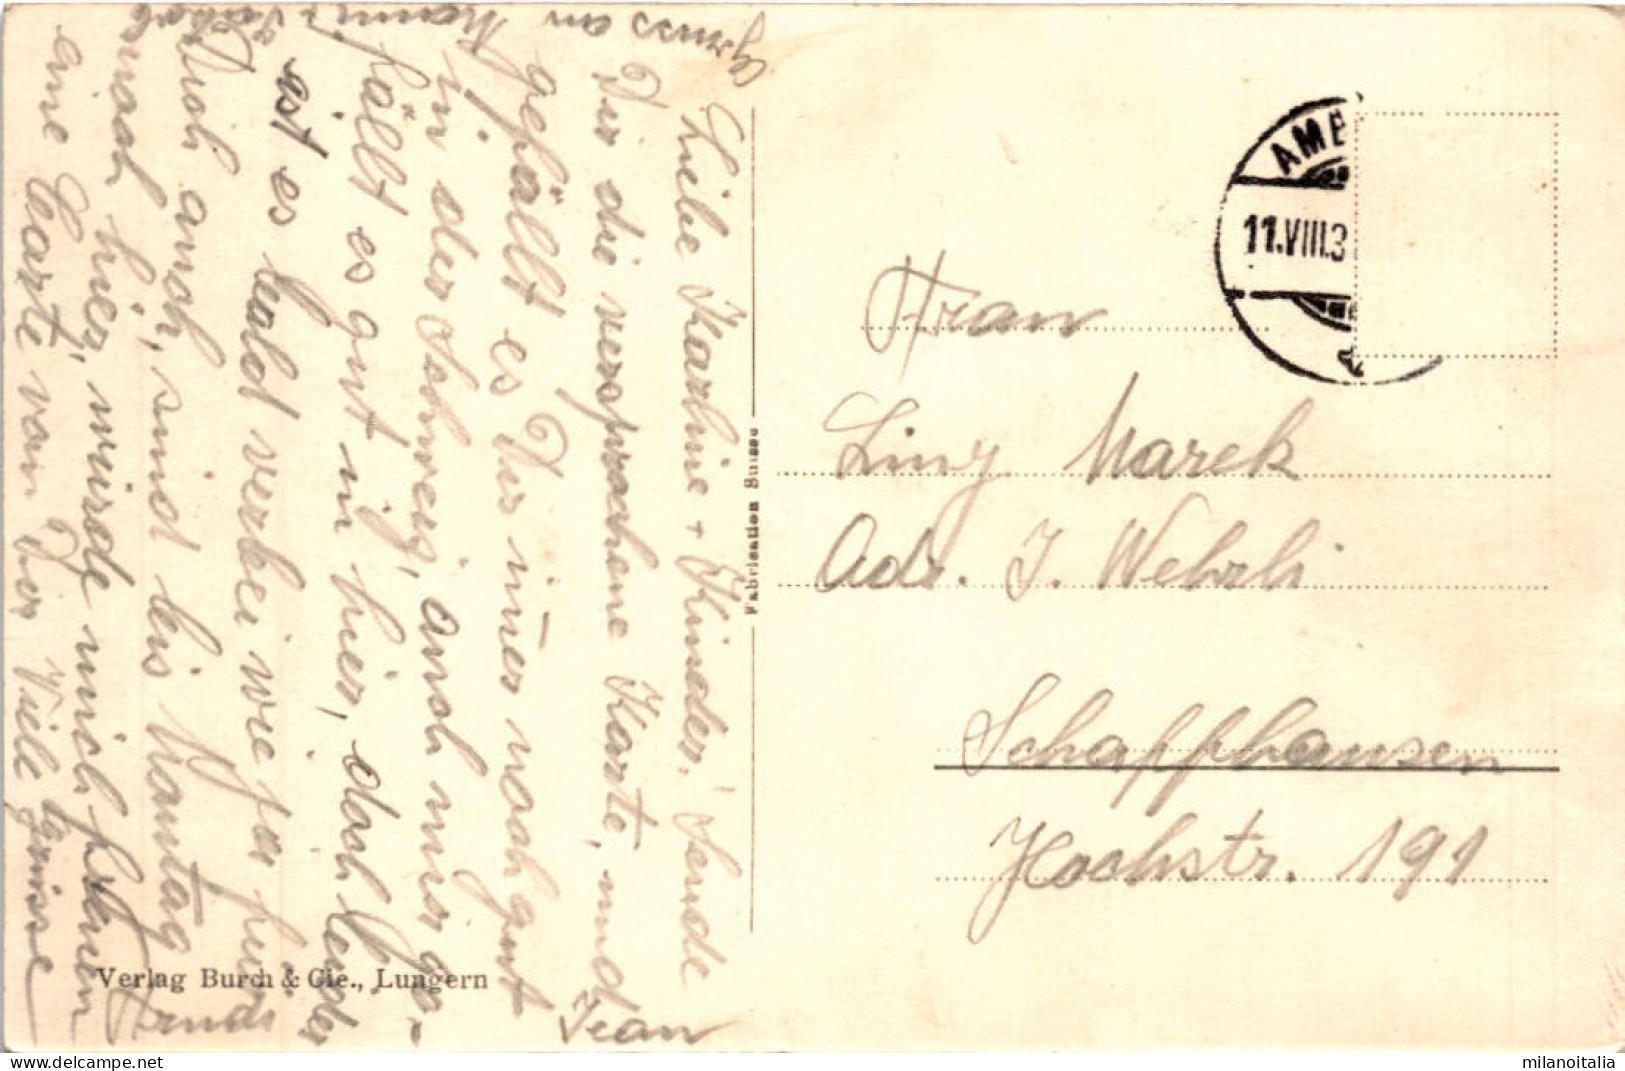 Liebe Karline + Kinder! Sende
Dir die versprochene Karte, und
gefällt es Dir imer noch gut
in der Schweiz, auch mir ge-
fällt es gut in hier, doch leider
ist es bald verbei wie für hier
auch, sind bis Montag
noch hier, würde mich freuen
eine Carte von Dir Viele Grüsse
Jean
Gruss an
Verlag Burch & Cie., Lungern
Fabrication Suisse
AME
11.VIII.3
Frau
Liny Marek
Adr. J. Wehrli
Schaffhausen
Hochstr. 191
milanoitalia